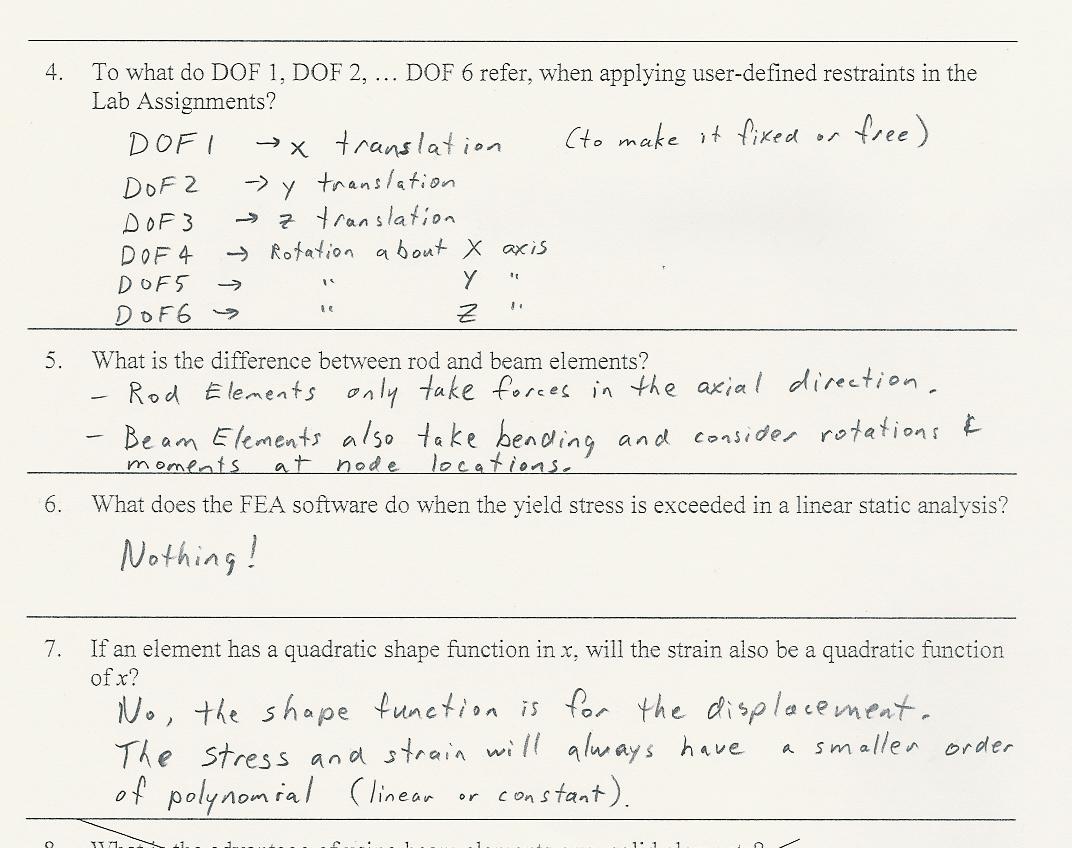 4. To what do DOF 1, DOF 2, … DOF 6 refer, when applying user-defined restraints in the
Lab Assignments?
DOF 1 → x translation (to make it fixed or free)
DOF 2 → y translation
DOF 3 → z translation
DOF 4 → Rotation about X axis
DOF 5 → " Y "
DOF 6 → " Z "
5. What is the difference between rod and beam elements?
– Rod Elements only take forces in the axial direction.
– Beam Elements also take bending and consider rotations &
moments at node locations.
6. What does the FEA software do when the yield stress is exceeded in a linear static analysis?
Nothing!
7. If an element has a quadratic shape function in x, will the strain also be a quadratic function
of x?
No, the shape function is for the displacement.
The stress and strain will always have a smaller order
of polynomial (linear or constant).